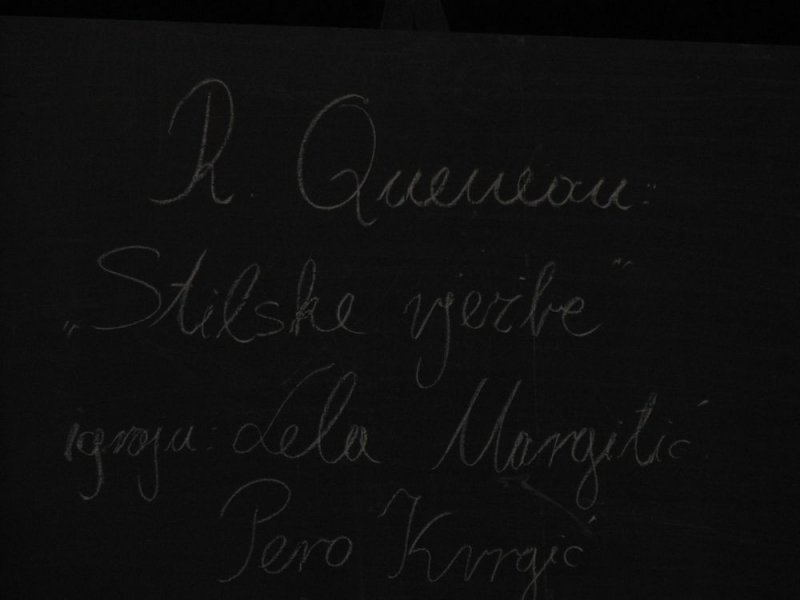 R. Queneau:
„Stilske vježbe"
igraju: Lela Margitić
Pero Kvrgić